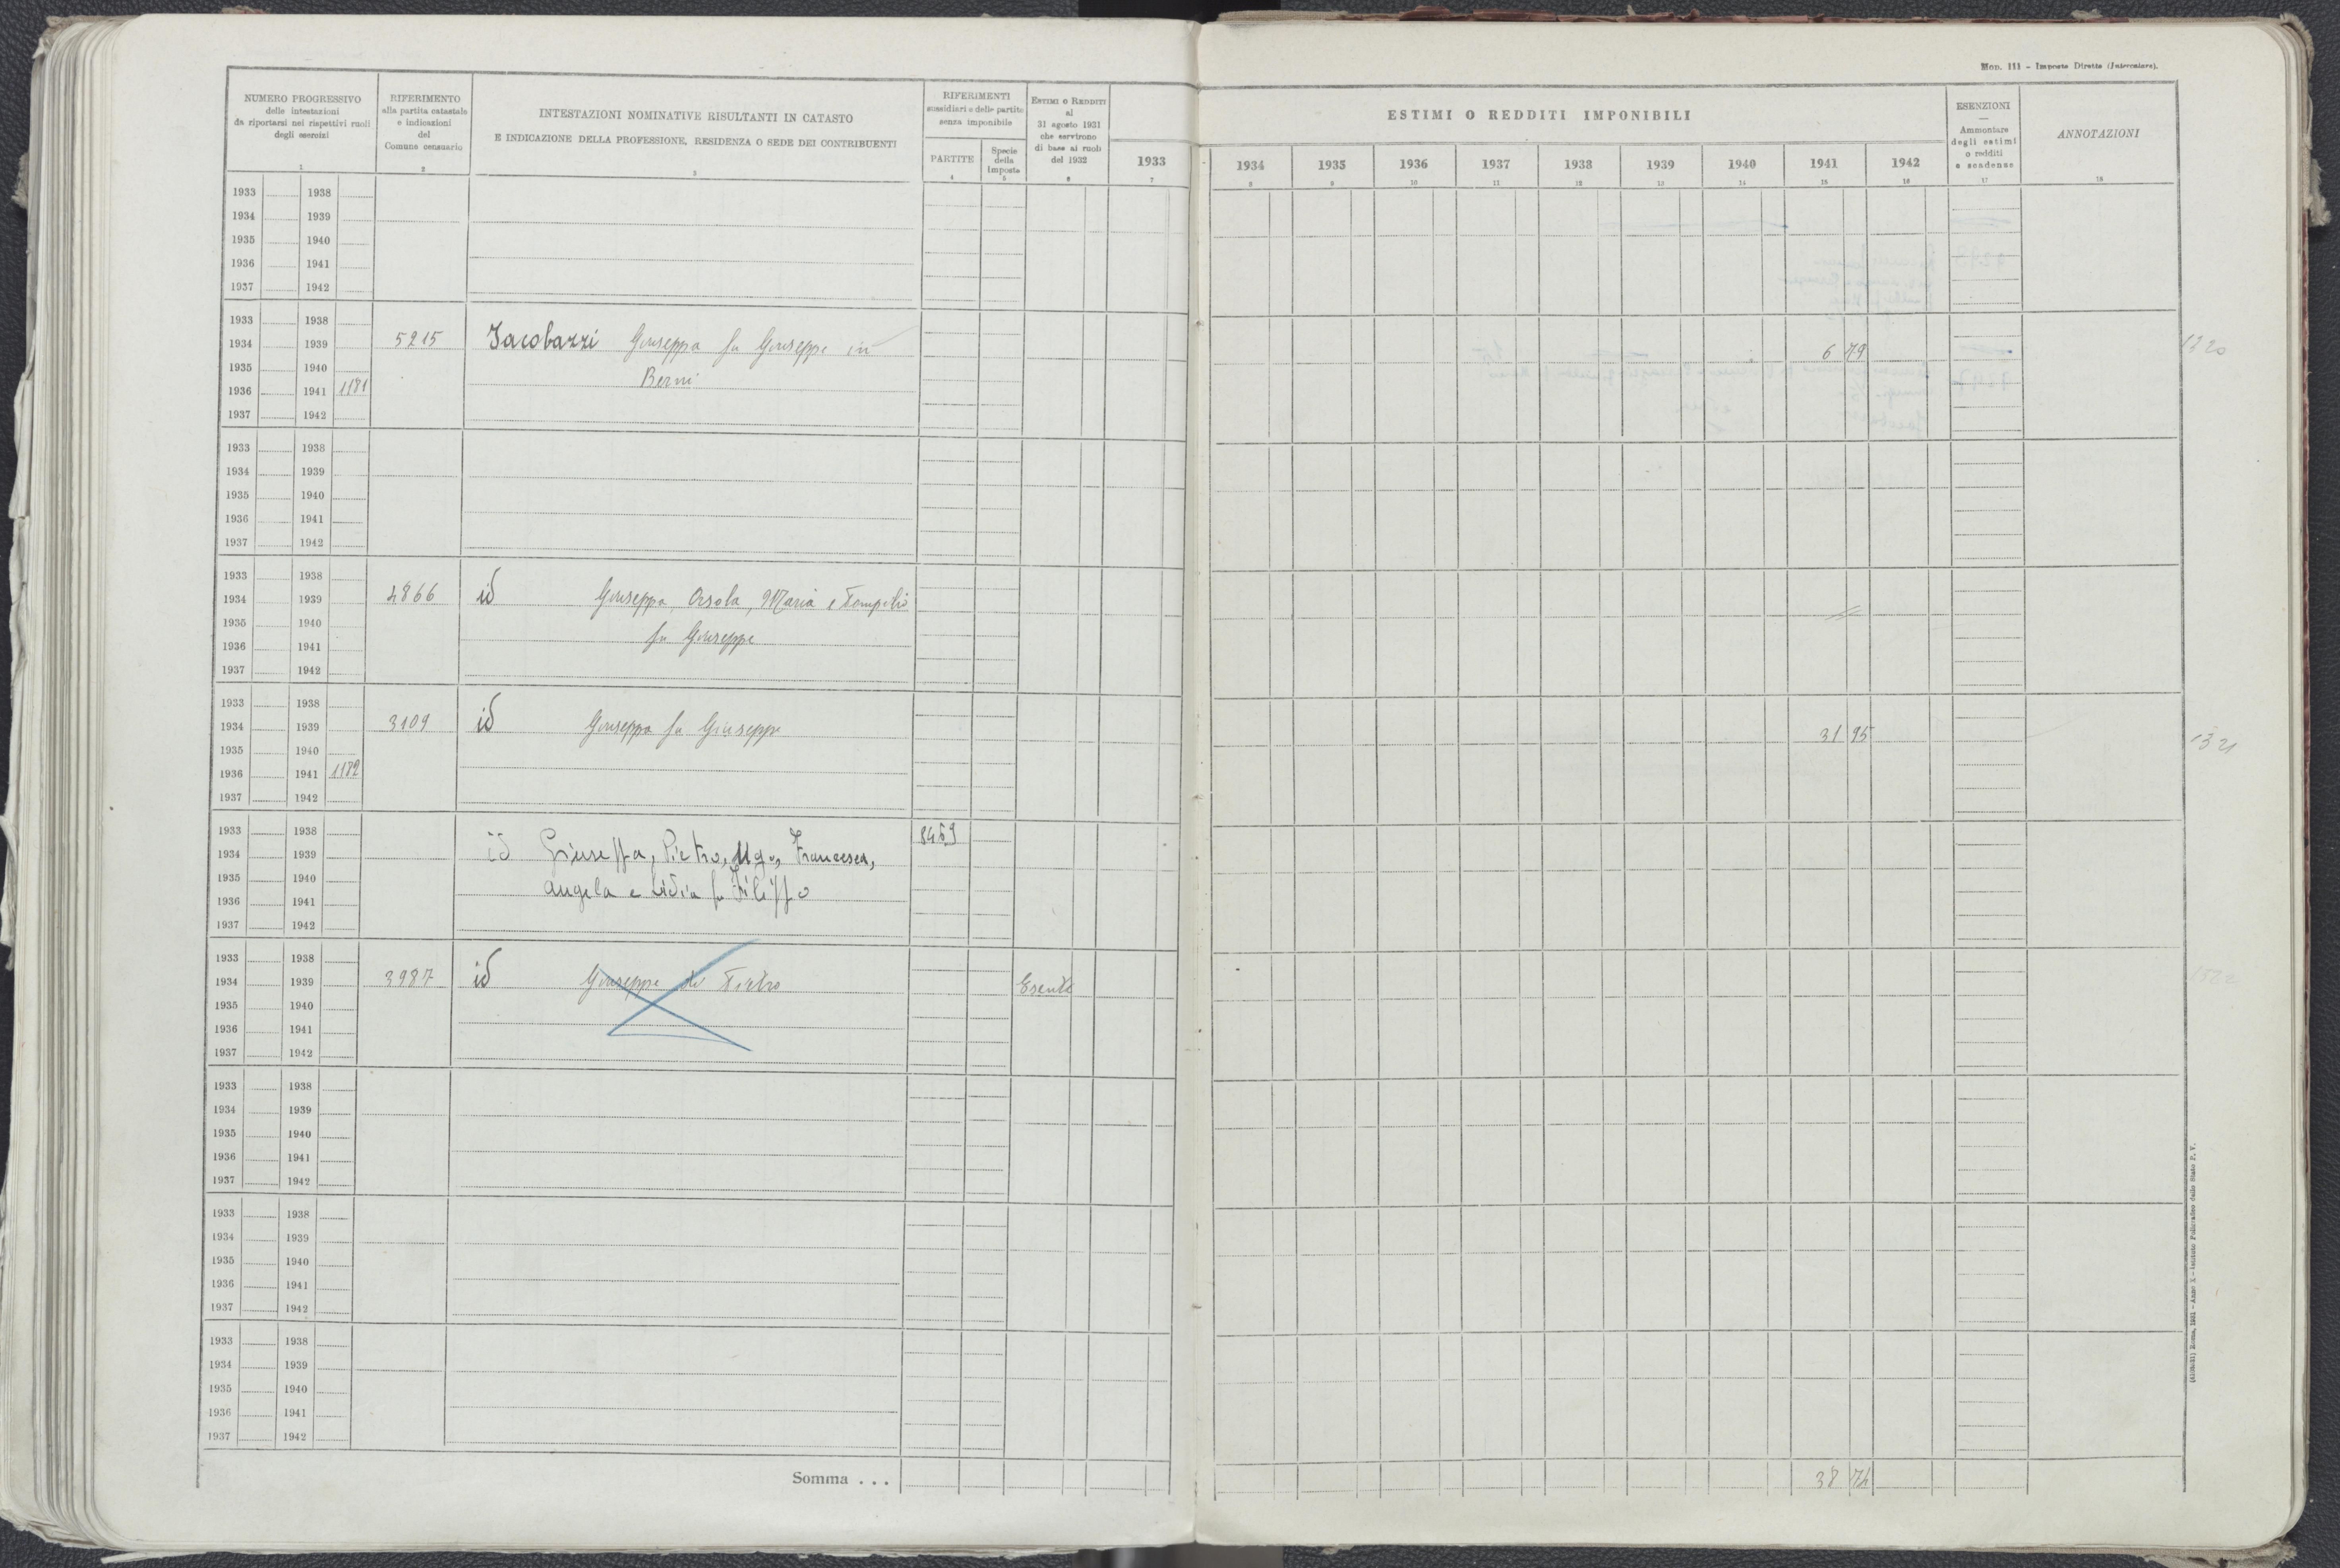 Mod. 111 – Imposte Dirette (Intercalare).
NUMERO PROGRESSIVO
delle intestazioni
da riportarsi nei rispettivi ruoli
degli esercizi
1
RIFERIMENTO
alla partita catastale
e indicazioni
del
Comune censuario
2
INTESTAZIONI NOMINATIVE RISULTANTI IN CATASTO
E INDICAZIONE DELLA PROFESSIONE, RESIDENZA O SEDE DEI CONTRIBUENTI
3
RIFERIMENTI
sussidiari e delle partite
senza imponibile
PARTITE
4
Specie
della
Imposta
5
ESTIMI O REDDITI
al
31 agosto 1931
che servirono
di base ai ruoli
del 1932
6
ESTIMI O REDDITI IMPONIBILI
1933 1934 1935 1936 1937 1938 1939 1940 1941 1942
7 8 9 10 11 12 13 14 15 16
ESENZIONI
—
Ammontare
degli estimi
o redditi
e scadenze
17
ANNOTAZIONI
18
1933 1938
1934 1939
1935 1940
1936 1941
1937 1942
1933 1938
1934 1939 5215 Jacobazzi Giuseppa fu Giuseppe in 6 79 1320
1935 1940 Berni
1936 1941 1181
1937 1942
1933 1938
1934 1939
1935 1940
1936 1941
1937 1942
1933 1938
1934 1939 4866 id Giuseppa, Orsola, Maria e Pompilio
1935 1940 fu Giuseppe
1936 1941
1937 1942
1933 1938
1934 1939 3109 id Giuseppa fu Giuseppe 31 95 1321
1935 1940
1936 1941 1182
1937 1942
1933 1938 8459
1934 1939 id Giuseppa, Pietro, Ugo, Francesca,
1935 1940 Angela e Lidia fu Filippo
1936 1941
1937 1942
1933 1938
1934 1939 3987 id Giuseppe di Pietro Esente 1322
1935 1940
1936 1941
1937 1942
1933 1938
1934 1939
1935 1940
1936 1941
1937 1942
1933 1938
1934 1939
1935 1940
1936 1941
1937 1942
1933 1938
1934 1939
1935 1940
1936 1941
1937 1942
Somma . . . 38 74
Roma, 1931 – Anno X – Istituto Poligrafico dello Stato P. V.